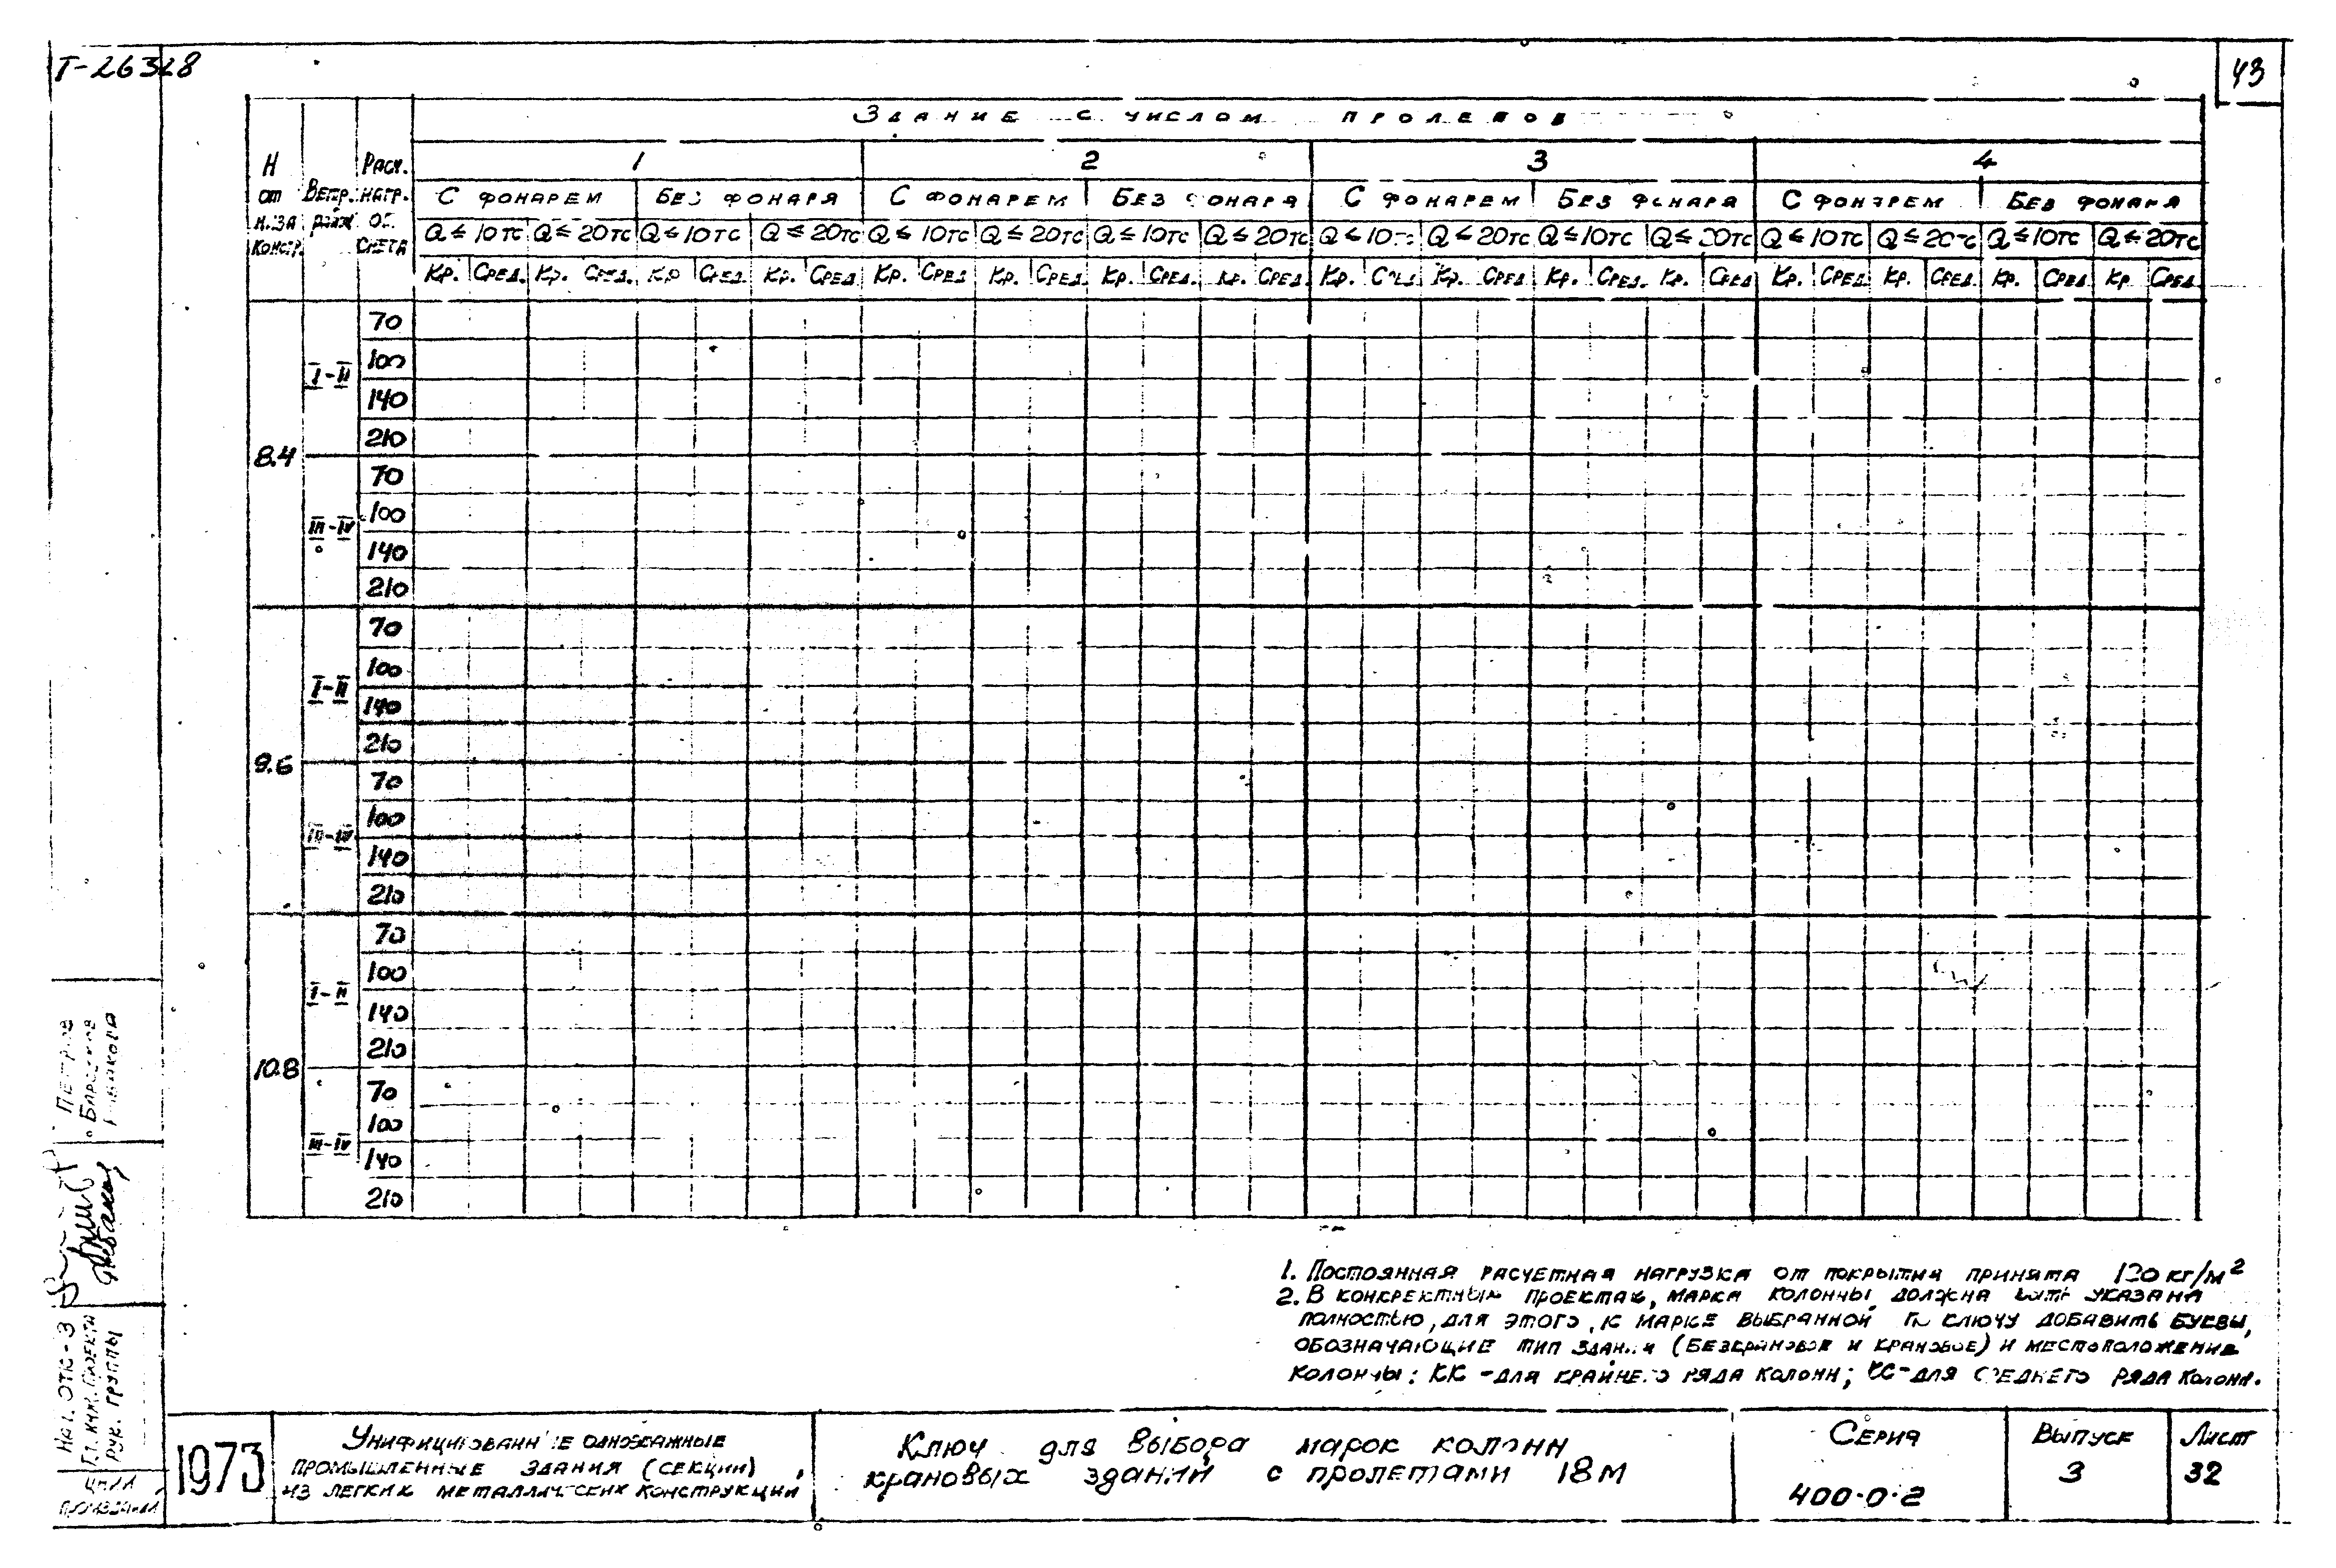 Т-26328
43
Здание с числом пролетов
Н от низа констр.
Ветр. район
Расч. нагр. от снега
1 2 3 4
С фонарем Без фонаря С фонарем Без фонаря С фонарем Без фонаря С фонарем Без фонаря
Q≤10тс Q≤20тс Q≤10тс Q≤20тс Q≤10тс Q≤20тс Q≤10тс Q≤20тс Q≤10тс Q≤20тс Q≤10тс Q≤20тс Q≤10тс Q≤20тс Q≤10тс Q≤20тс
Кр. Сред. Кр. Сред. Кр. Сред. Кр. Сред. Кр. Сред. Кр. Сред. Кр. Сред. Кр. Сред. Кр. Сред. Кр. Сред. Кр. Сред. Кр. Сред. Кр. Сред. Кр. Сред. Кр. Сред. Кр. Сред.
8.4
I-II
70
100
140
210
III-IV
70
100
140
210
9.6
I-II
70
100
140
210
III-IV
70
100
140
210
10.8
I-II
70
100
140
210
III-IV
70
100
140
210
1. Постоянная расчетная нагрузка от покрытия принята кг/м²
2. В конкретных проектах, марка колонны должна быть указана
полностью, для этого, к марке выбранной по ключу добавить буквы,
обозначающие тип здания (безкрановое и крановое) и местоположение
колонны: КК - для крайнего ряда колонн; КС - для среднего ряда колонн.
Петров
Нач. ОТК-3
Гл. инж. проекта
Рук. группы
1973
Унифицированные одноэтажные
промышленные здания (секции)
из легких металлических конструкций
Ключ для выбора марок колонн
крановых зданий с пролетами 18м
Серия
400-0-2
Выпуск
3
Лист
32